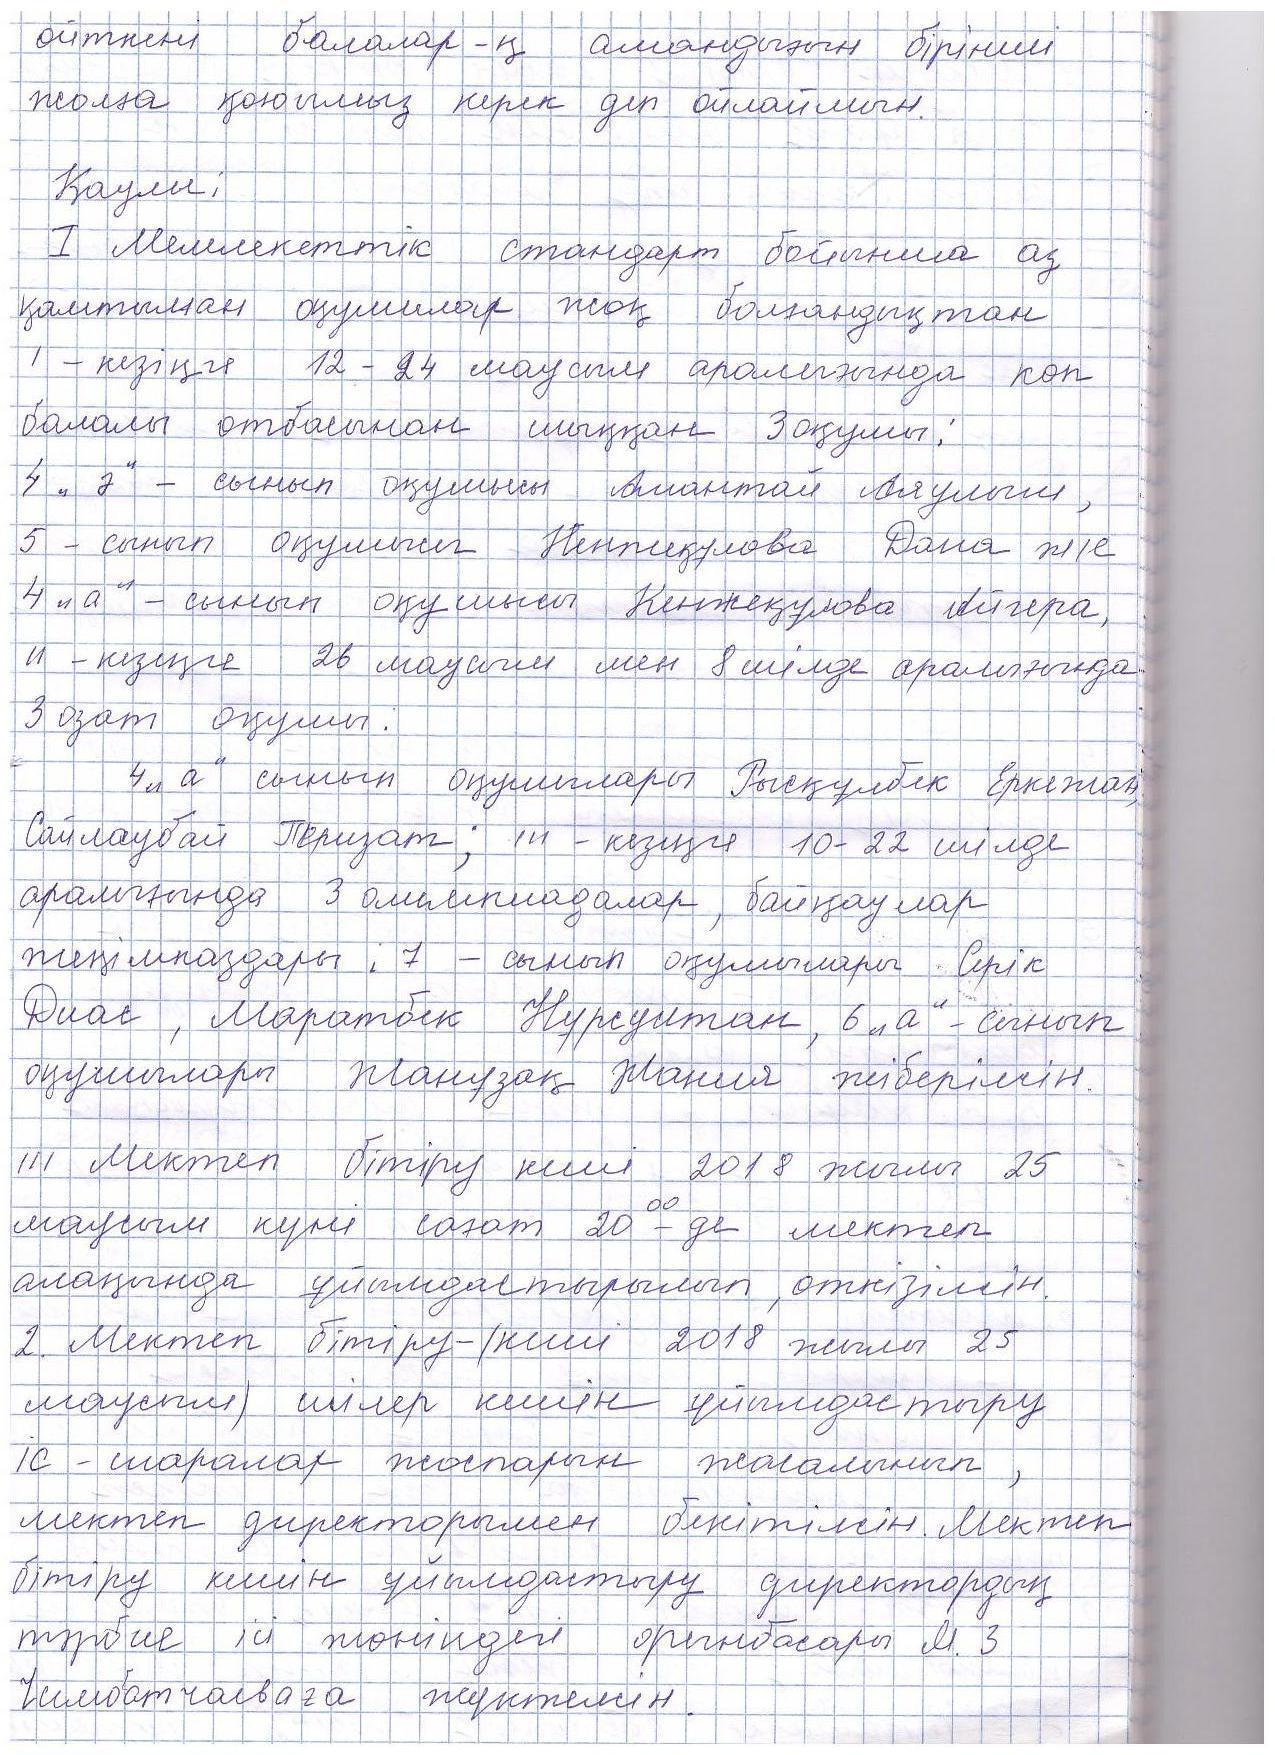 өйткені балалар-ң амандығын бірінші
жолға қоюымыз керек деп ойлаймын.
Қаулы:
I Мемлекеттік стандарт бойынша аз
қамтылған оқушылар жоқ болғандықтан
I - кезеңге 12 - 24 маусым аралығында көп
балалы отбасынан шыққан 3 оқушы:
4 „ә" - сынып оқушысы Амантай Аяулым,
5 - сынып оқушысы Кенжеқулова Дана ж/е
4 „а" - сынып оқушысы Кенжеқулова Айгера,
II - кезеңге 26 маусым мен 8 шілде аралығында
3 озат оқушы:
4 „а" сынып оқушылары Рысқулбек Еркежан,
Сайлаубай Перизат; III - кезеңге 10-22 шілде
аралығында 3 олимпиадалар, байқаулар
жеңімпаздары: 7 - сынып оқушылары Серік
Диас, Маратбек Нурсултан, 6 „а" - сынып
оқушылары Жанұзақ Жания жіберілсін.
III Мектеп бітіру кеші 2018 жылы 25
маусым күні сағат 20 00 - де мектеп
алаңында ұйымдастырылып, өткізілсін.
2. Мектеп бітіру-(кеші 2018 жылы 25
маусым) шілер кешін ұйымдастыру
іс - шаралар жоспарын жасалынып,
мектеп директорымен бекітілсін. Мектеп
бітіру кешін ұйымдастыру директордың
тәрбие ісі жөніндегі орынбасары М. З
Чимбатчаеваға жүктелсін.